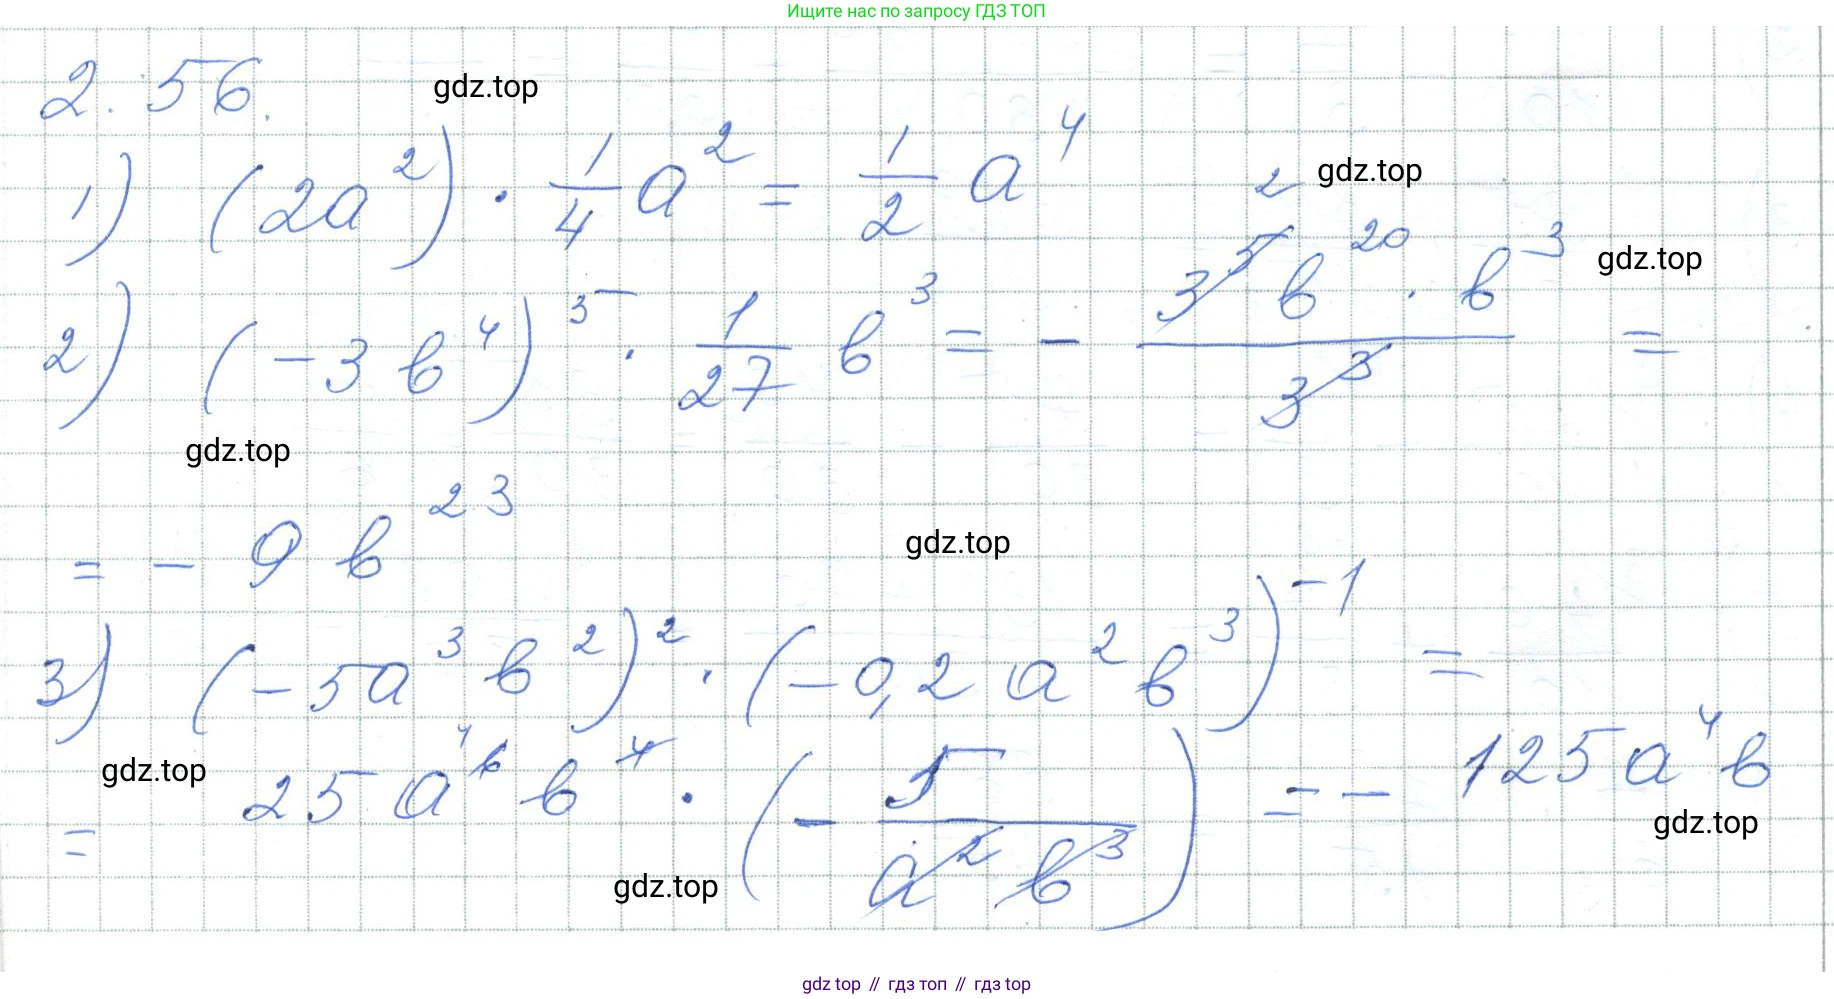 Ищите нас по запросу ГДЗ ТОП
2.56.
gdz.top
1) (2a²) · 1/4 a² = 1/2 a⁴
gdz.top
2) (-3b⁴)⁵ · 1/27 b³ = - 3⁵b²⁰ · b³ / 3³ =
2
gdz.top
gdz.top
= - 9b²³
gdz.top
3) (-5a³b²)² · (-0,2a²b³)⁻¹ =
gdz.top
= 25a⁶b⁴ · (- 5/a²b³) = - 125a⁴b
4
gdz.top
gdz.top
gdz top // гдз топ // гдз top